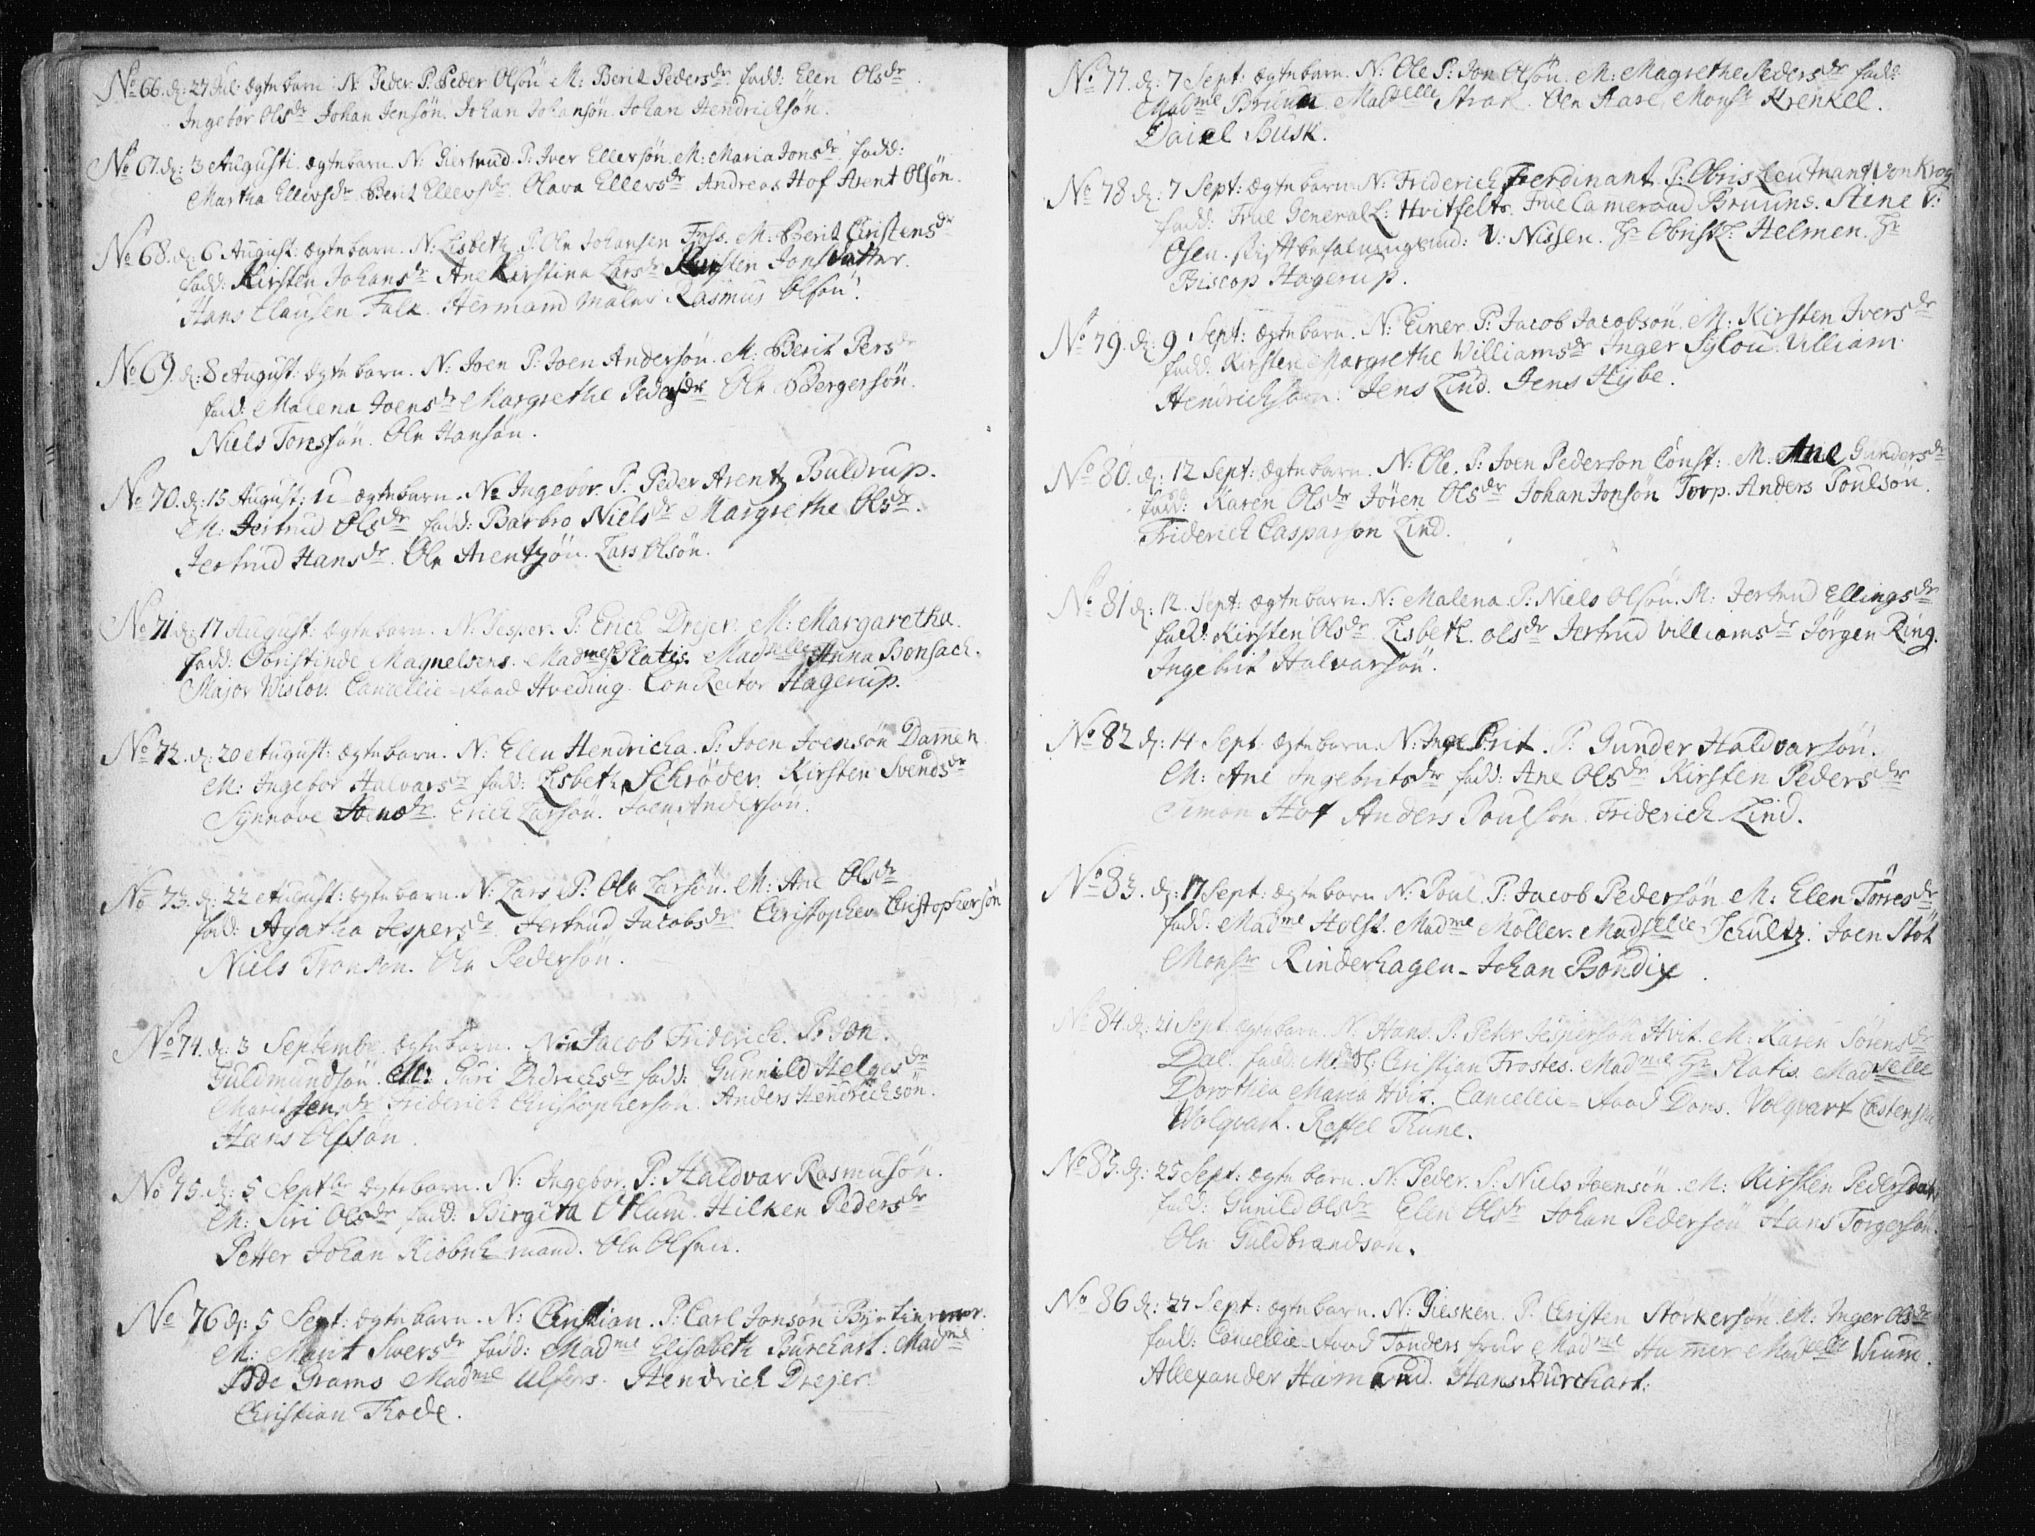 No 66. d: 27 Jul: ægte barn N: Peder P: Peder Olsön M: Berit Pedersdr fadd: Elen Olsdr
Ingebor Olsdr Johan Jensön. Johan Johansön Johan Hendrichsön.
No 67. d: 3 Augusti. ægte barn. N: Giertrud. P: Iver Ellersön. M: Maria Jonsdr fadd:
Martha Ellersdr Berit Ellersdr. Olava Ellersdr Andreas Hof Arent Olsön.
No 68. d: 6 August: ægte barn. N: Lisbeth P: Ole Johansen Foss. M: Berit Christensdr
fadd: Kirsten Johansdr Ane Kirstina Larsdr Kirsten Jonsdatter.
Hans Clausen Falk. Hermand Maler Rasmus Olsön.
No 69. d: 8 August: ægte barn. N: Joen P: Joen Andersön. M: Berit Persdr
fadd: Malena Joensdr Margrethe Pedersdr Ole Bergersön.
Niels Toresön. Ole Hansön.
No 70. d: 15 August: u ægte barn. N: Ingebor. P: Peder Arentz Buldrup.
M: Jertrud Olsdr fadd: Barbro Nielsdr Margrethe Olsdr.
Jertrud Hansdr. Ole Arentzön. Lars Olsön.
No 71. d: 17 August: ægte barn. N: Jesper. P: Erich Drejer. M: Margaretha.
fadd: Obristinde Magnelsens. Madme Platis. Madselle Anna Bonsach.
Major Wislou. Cancellie-Raad Hveding. Con Rector Hagerup.
No 72. d: 20 August: ægte barn. N: Elen Hendricha. P: Joen Joensön Dammen
M: Ingebor Halvarsdr fadd: Lisbeth Schröder. Kirsten Svendsdr
Synnöve Joensdr. Erich Larsön. Joen Andersön.
No 73. d: 22 August: ægte barn. N: Lars P: Ole Larsön. M: Ane Olsdr
fad: Agatha Jespersdr Jertrud Jacobsdr Christopher Christophersön
Niels Tronson. Ole Pedersön.
No 74. d: 3 Septembr. ægte barn. N: Jacob Friderich. P: Jon
Guldmundsön. M: Guri Didrichsdr fadd: Gunnild Helgesdr
Marit Jensdr Friderich Christophersön. Anders Hendrichsön.
Hans Olssön.
No 75. d: 5 Septbr ægte barn. N: Ingebor. P: Haldvar Rasmusön.
M: Siri Olsdr fadd: Birgita Blum. Hilken Pedersdr
Petter Johan Kiobrik mand. Ole Olsen.
No 76 d: 5 Sept: ægte barn. N: Christian. P: Carl Jonsön
M: Marit Iversdr fadd: Madme Elisabeth Burchart. Madme
Grams Madme Ulfers. Hendrich Drejer
Christian Thode.
No 77. d: 7 Sept: ægte barn. N: Ole P: Jon Olsön. M: Magrethe Pedersdr fadd:
Madme Bruun Madelle Strak. Ole Aare, Monsr Krenkel.
Daiel Busk.
No 78 d: 7 Sept: ægte barn N: Friderich Ferdinant. P: Obrist Leutnant Von Krog
fadd: Frue General L: Hvitfelts. Frue Cameraad Bruuns. Stine V:
Osen. Stiftbefalningsmd: V: Nissen. Hr Obristl: Helmen. Hr
Biscop Hagerup.
No 79. d: 9 Sept: ægte barn. N: Einer P: Jacob Jacobsön. M: Kirsten Iversdr
fadd: Kirsten Margrethe Williamsdr Inger Sylou. Villiam
Hendrichsön. Jens Lind. Jens Hybe.
No 80. d: 12 Sept: ægte barn. N: Ole. P: Joen Pederson Const: M. Ane Gundersdr
fadd: Karen Olsdr Jören Olsdr Johan Jonsön Torp. Anders Poulsön.
Friderich Casparson Lind.
No 81 d: 12. Sept: ægte barn. N: Malena. P: Niels Olsön. M: Jertrud Ellingsdr
fadd: Kirsten Olsdr Lisbeth olsdr Jertrud Villiamsdr Jörgen Ring.
Ingebrit Halvarsön.
No 82 d: 14 Sept: ægte barn. N: Ingebrit. P: Gunder Haldvarsön.
M: Ane Ingebritsdr fadd: Ane Olsdr Kirsten Pedersdr
Simon Hof Anders Poulsön. Friderich Lind.
No 83. d: 17 Sept: ægte barn N: Poul P: Jacob Pedersön. M: Elen Törresdr
fadd: Madme Holst. Madme Möller. Madselle Schultz. Joen Stöt
Monsr Rinderhagen. Johan Bondix.
No 84. d: 21 Sept ægte barn. N: Hans. P: Peter Jespersön Hvit. M: Karen Sörensdr
Dal. fadd: Christian Frostes. Madme Hr Platis. Madselle
Dorothea Maria Hvit. Cancellie-Raad Dons. Volqvart
Wolqvart. Roffel Thune.
No 85. d: 25 Sept: ægte barn. N: Peder. P: Niels Joensön. M: Kirsten Pedersdatr
fadd: Gunild Olsdr Elen Olsdr Johan Pedersön Hans Torgersön.
Ole Guldbrandsön.
No 86 d: 27 Sept: ægte barn. N: Giesken P: Christen Storkersön. M: Inger Olsdr
fadd: Cancellie-Raad Tönders frue Madme Hammer Madselle Wium.
Allexander Hamand. Hans Burchart.